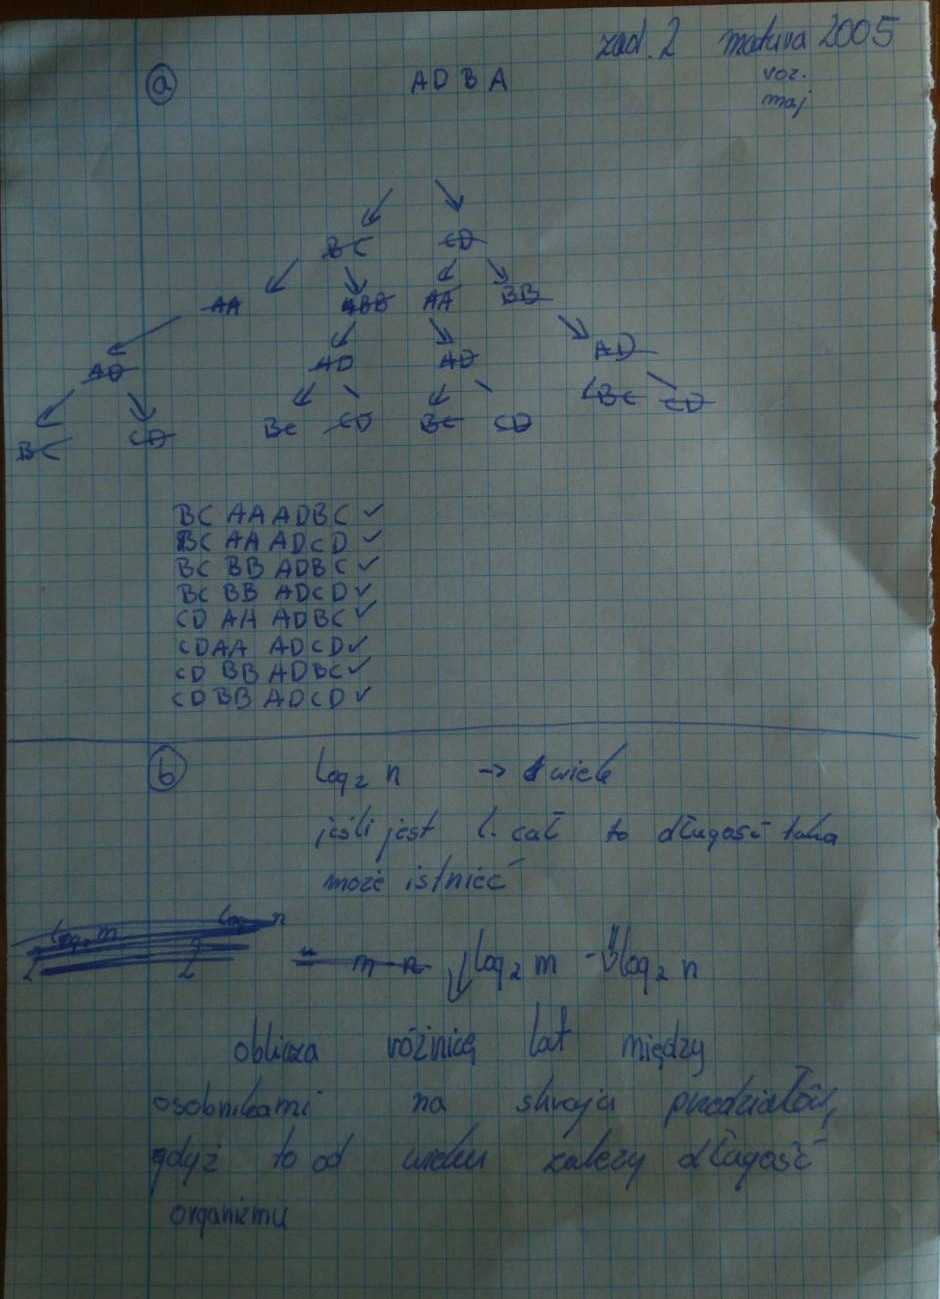 zad. 2 matura 2005
roz.
maj
a
ADBA
BC CD
AA BB AA BB
AD AD AD AD
BC CD BC CD BC CD BC CD
BC AA ADBC ✓
BC AA ADCD ✓
BC BB ADBC ✓
BC BB ADCD ✓
CD AA ADBC ✓
CDAA ADCD ✓
CD BB ADBC ✓
CDBB ADCD ✓
b
log₂ n → wiek
jeśli jest l. cał to długość taka
może istnieć
log₂ m log n
2 2 = m-n ↓log₂ m - log₂ n
oblicza różnicę lat między
osobnikami na skraju przedziałów,
gdyż to od wieku zależy długość
organizmu